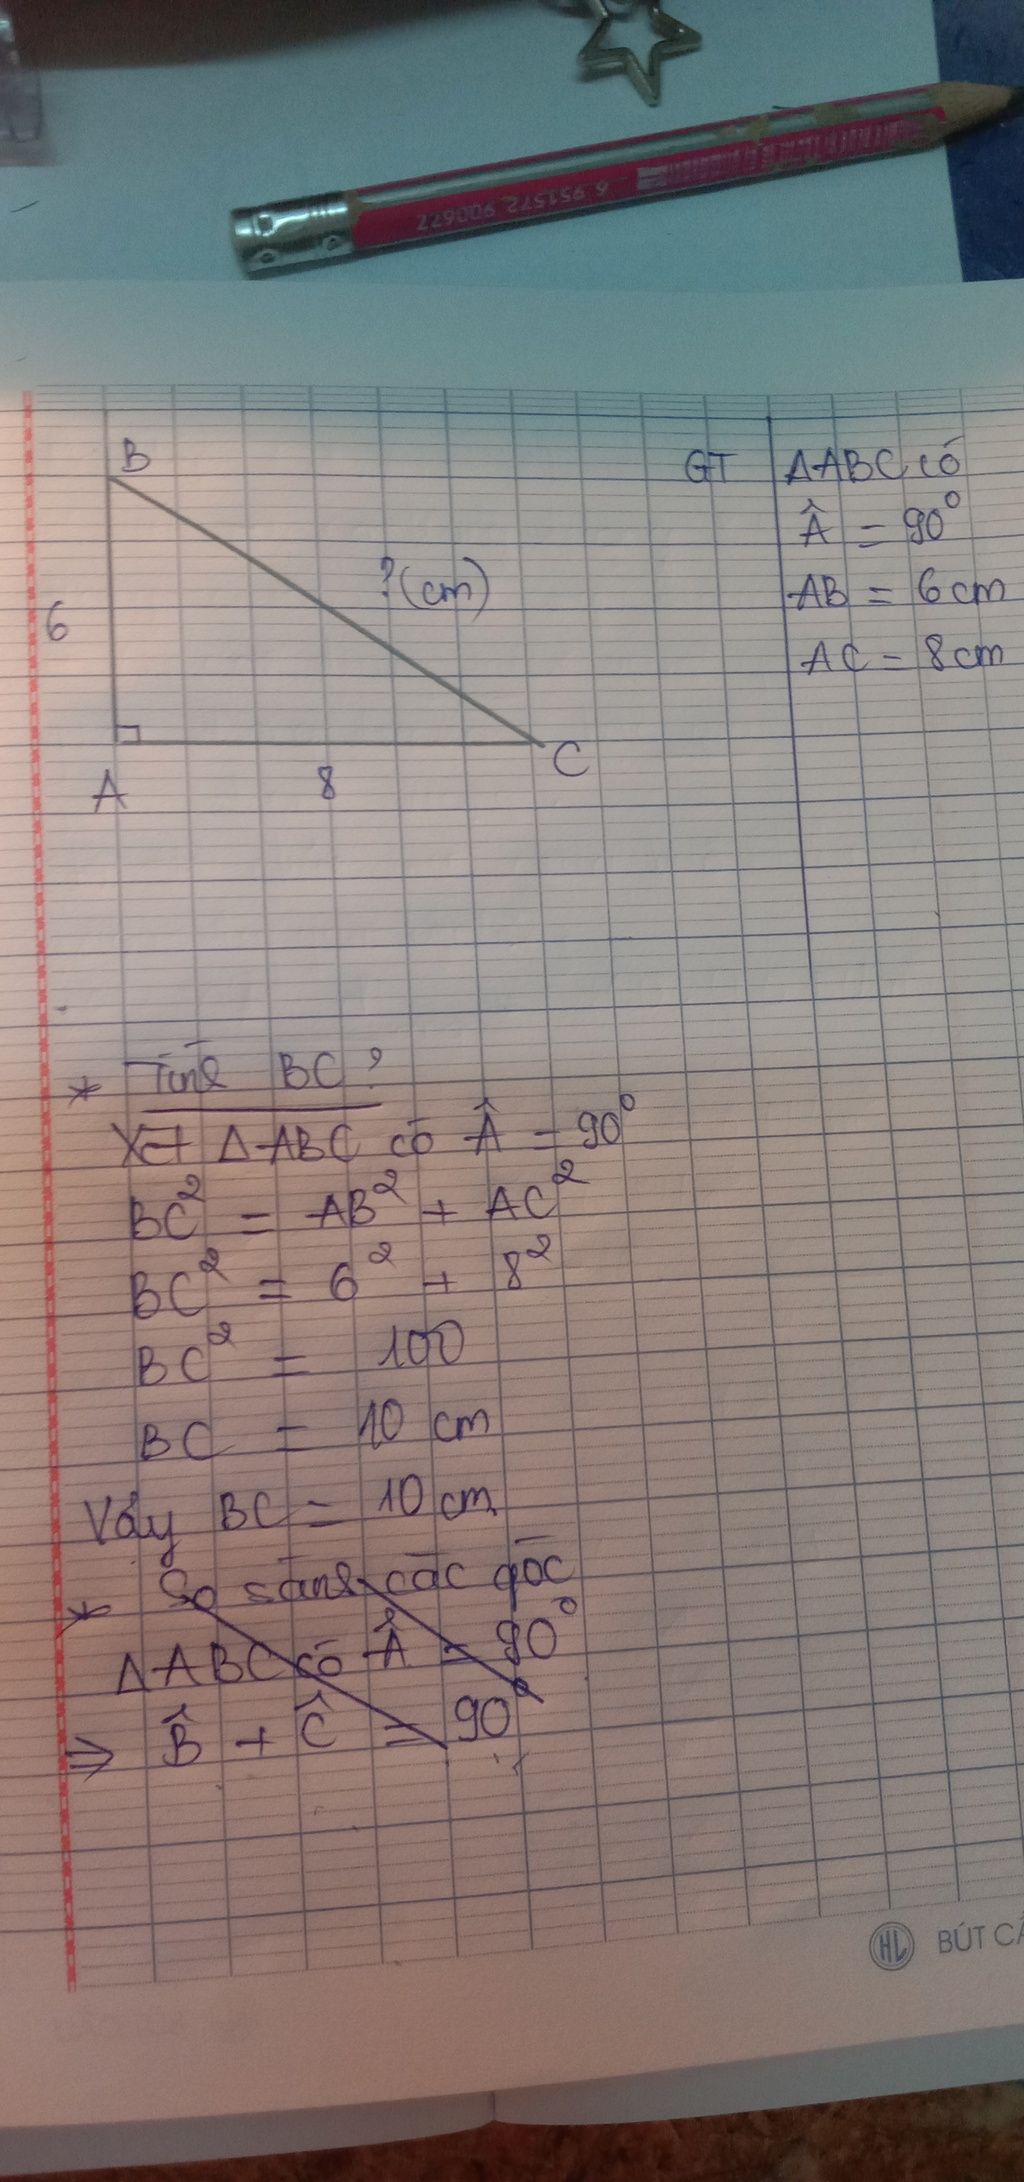 6 951572 900677
B
6
?(cm)
A
8
C
GT
ΔABC có
Â = 90°
AB = 6cm
AC = 8cm
* Tính BC?
Xét ΔABC có Â = 90°
BC² = AB² + AC²
BC² = 6² + 8²
BC² = 100
BC = 10 cm
Vậy BC = 10 cm
* So sánh các góc
ΔABC có Â = 90°
⇒ B̂ + Ĉ = 90°
HL BÚT